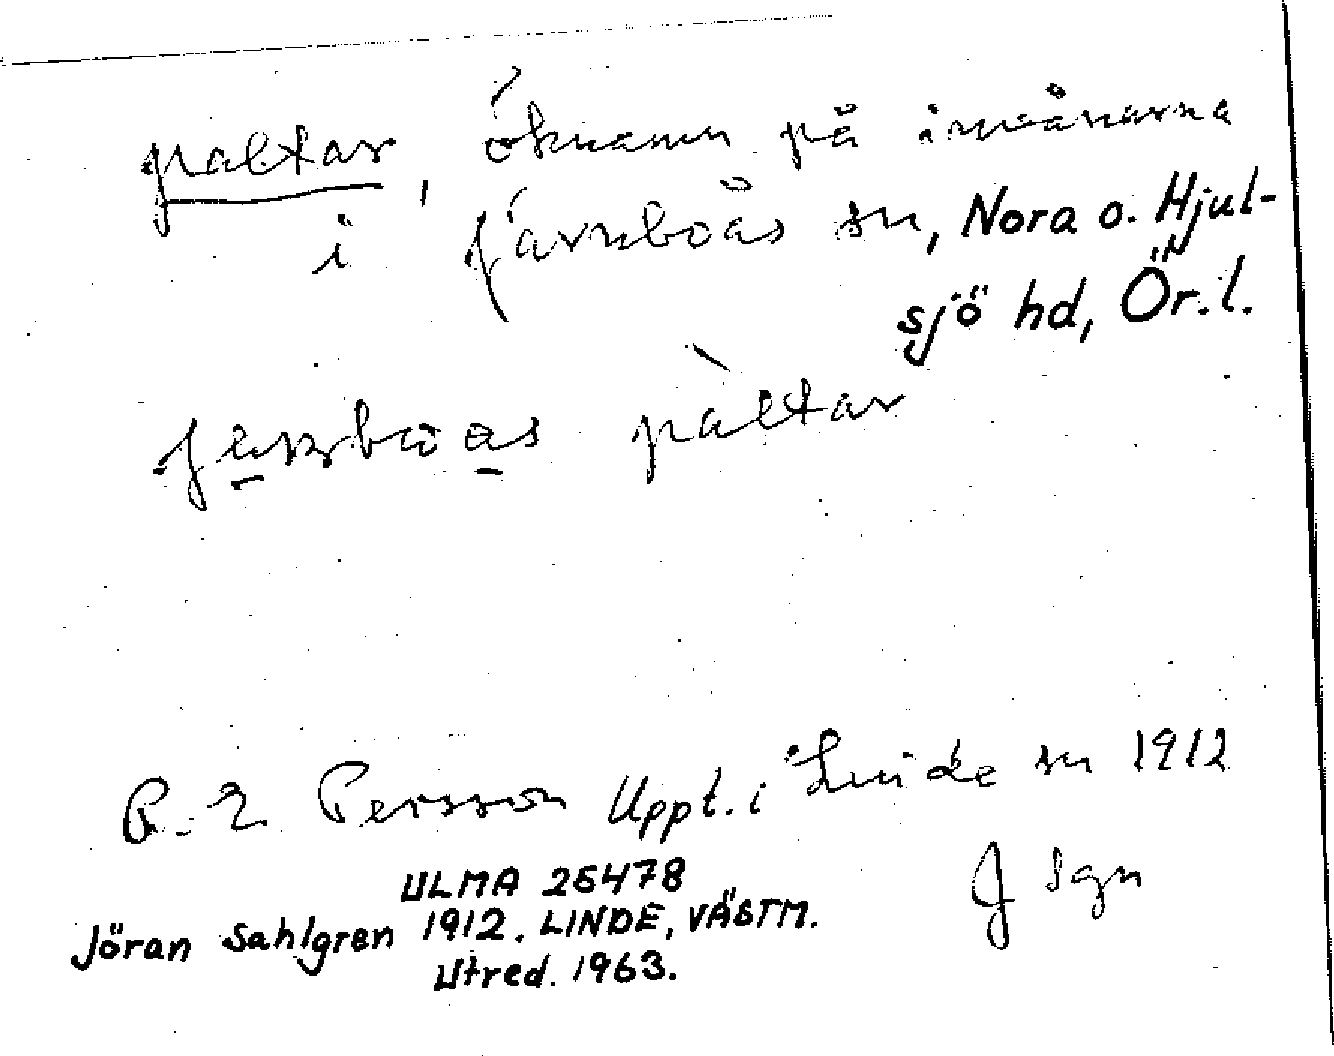 paltar, öknamn på invånarna
i Järnboås sn, Nora o. Hjul-
sjö hd, Ör. l.
jạrnboạs pàltar
P. E Persson Uppt. i Linde sn 1912
J Sgn
ULMA 26478
Jöran Sahlgren 1912. LINDE, VÄSTM.
Utred. 1963.